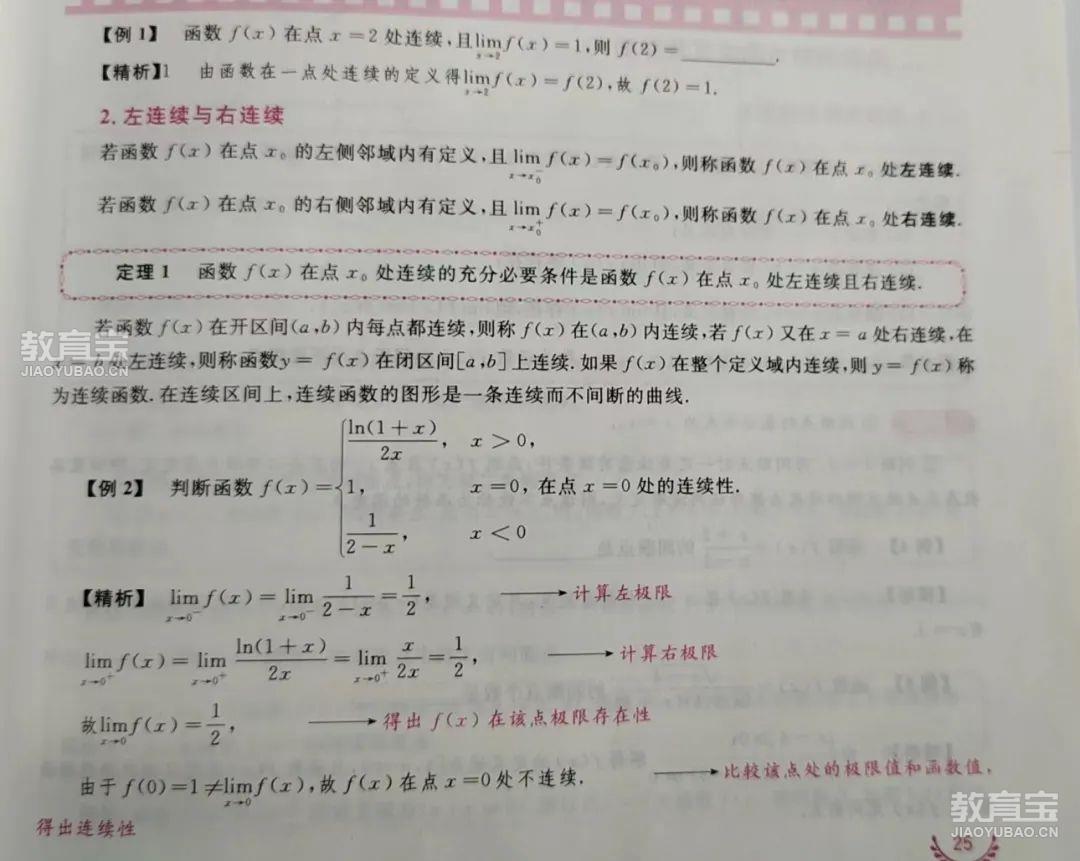 【例1】 函数 f(x) 在点 x=2 处连续,且lim_{x→2} f(x)=1,则 f(2)=________.
【精析】1 由函数在一点处连续的定义得lim_{x→2} f(x)=f(2),故 f(2)=1.
2. 左连续与右连续
若函数 f(x) 在点 x₀ 的左侧邻域内有定义,且 lim_{x→x₀⁻} f(x)=f(x₀),则称函数 f(x) 在点 x₀ 处左连续.
若函数 f(x) 在点 x₀ 的右侧邻域内有定义,且 lim_{x→x₀⁺} f(x)=f(x₀),则称函数 f(x) 在点 x₀ 处右连续.
定理 1 函数 f(x) 在点 x₀ 处连续的充分必要条件是函数 f(x) 在点 x₀ 处左连续且右连续.
若函数 f(x) 在开区间(a,b) 内每点都连续,则称 f(x) 在(a,b) 内连续,若 f(x) 又在 x=a 处右连续,在
处左连续,则称函数y=f(x) 在闭区间[a,b]上连续.如果 f(x) 在整个定义域内连续,则 y=f(x) 称
为连续函数.在连续区间上,连续函数的图形是一条连续而不间断的曲线.
【例2】 判断函数 f(x)={ln(1+x)/2x, x>0, 1, x=0, 1/(2-x), x<0 在点 x=0 处的连续性.
【精析】 lim_{x→0⁻} f(x)=lim_{x→0⁻} 1/(2-x)=1/2, →计算左极限
lim_{x→0⁺} f(x)=lim_{x→0⁺} ln(1+x)/2x=lim_{x→0⁺} x/2x=1/2, →计算右极限
故lim_{x→0} f(x)=1/2, →得出 f(x) 在该点极限存在性
由于 f(0)=1≠lim_{x→0} f(x),故 f(x) 在点 x=0处不连续. →比较该点处的极限值和函数值,
得出连续性
25
教育宝
JIAOYUBAO.CN
教育宝
JIAOYUBAO.CN